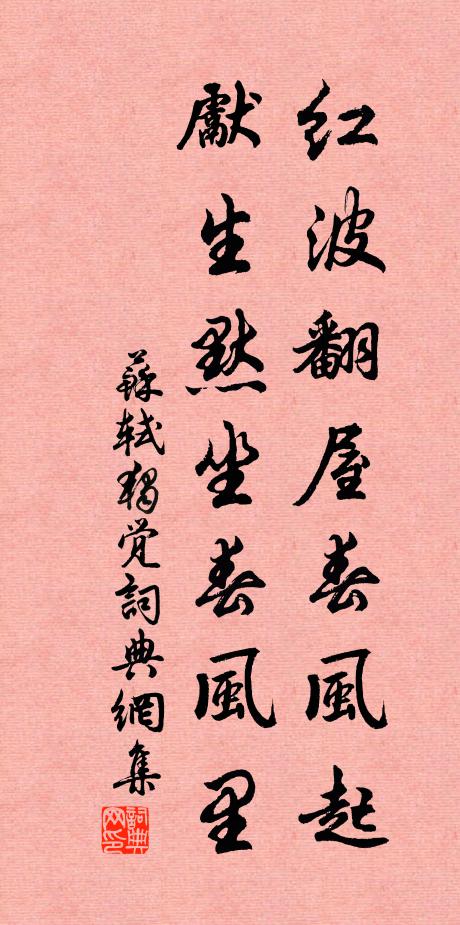 红波翻屋春風起
獻生默坐春風里
蘇軾獨觉詞典網集
詞典
网印